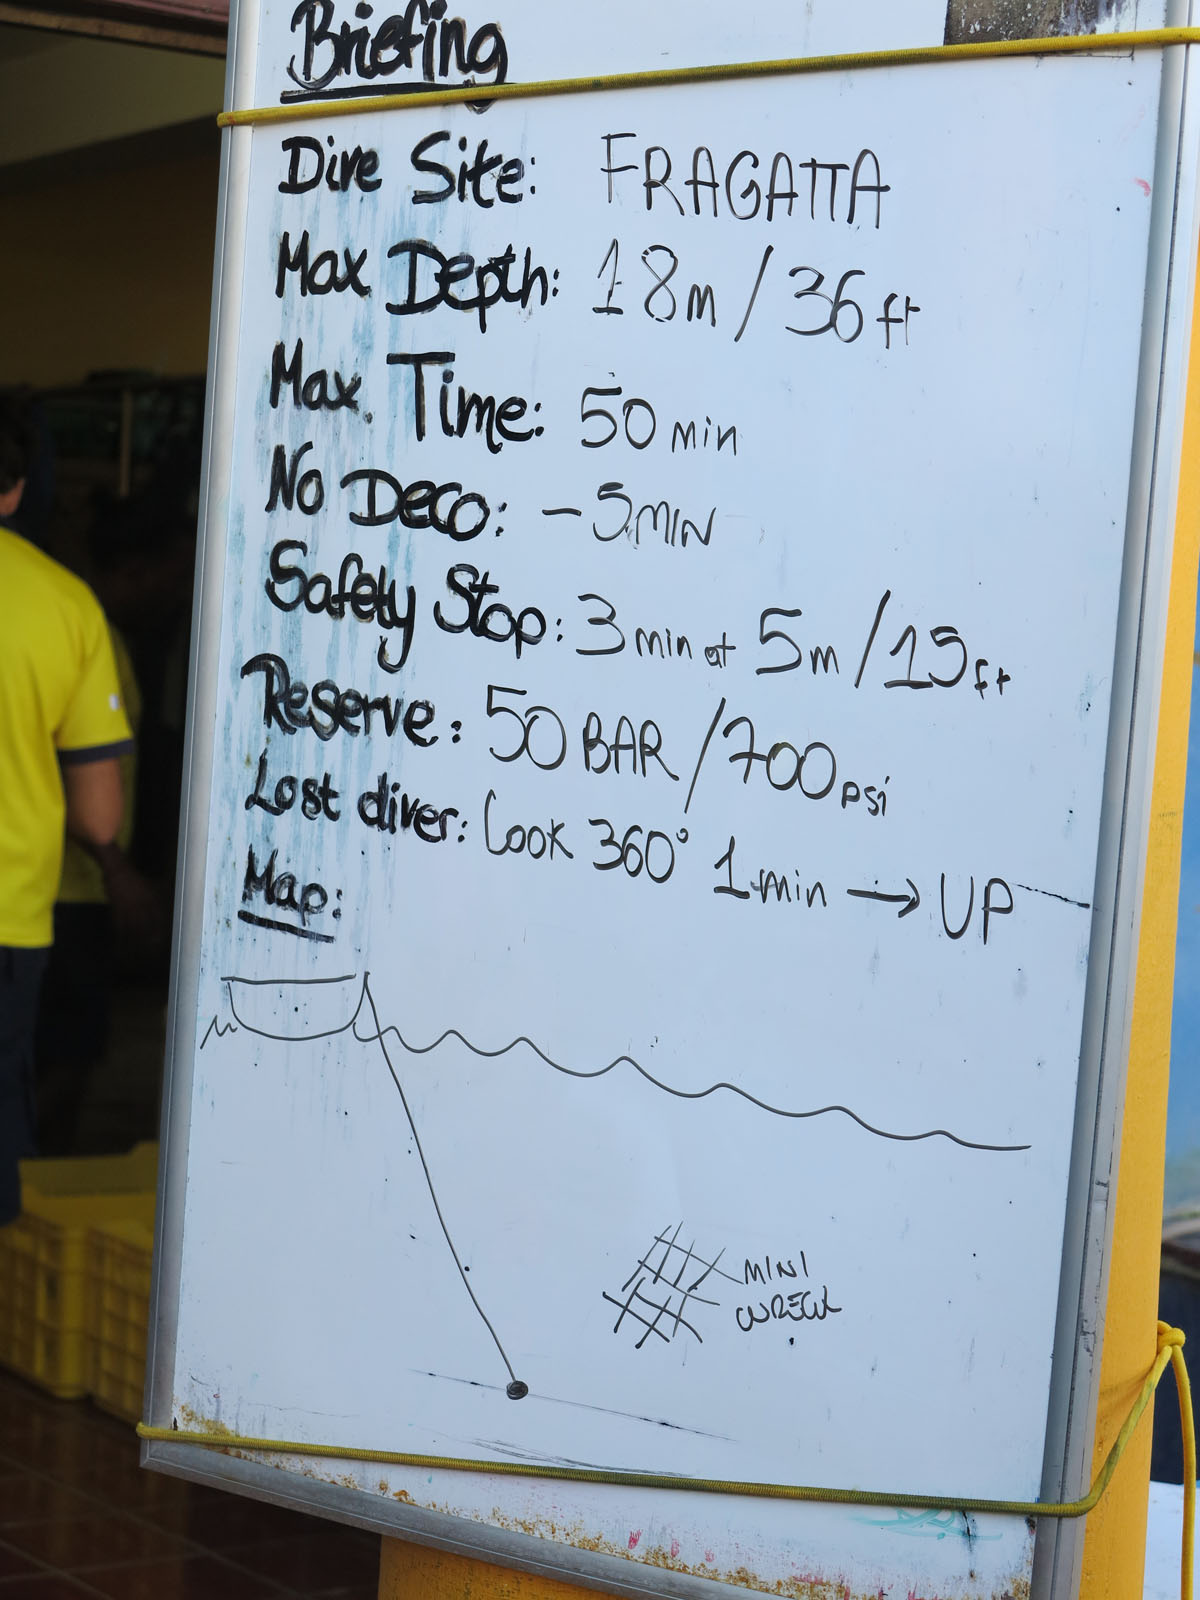 Briefing
Dive Site: FRAGATTA
Max Depth: 18m / 36 ft
Max. Time: 50 min
No Deco: - 5 MIN
Safety Stop: 3 min at 5m / 15 ft
Reserve: 50 BAR / 700 psi
Lost diver: Look 360° 1 min → UP
Map:
MINI
WRECK